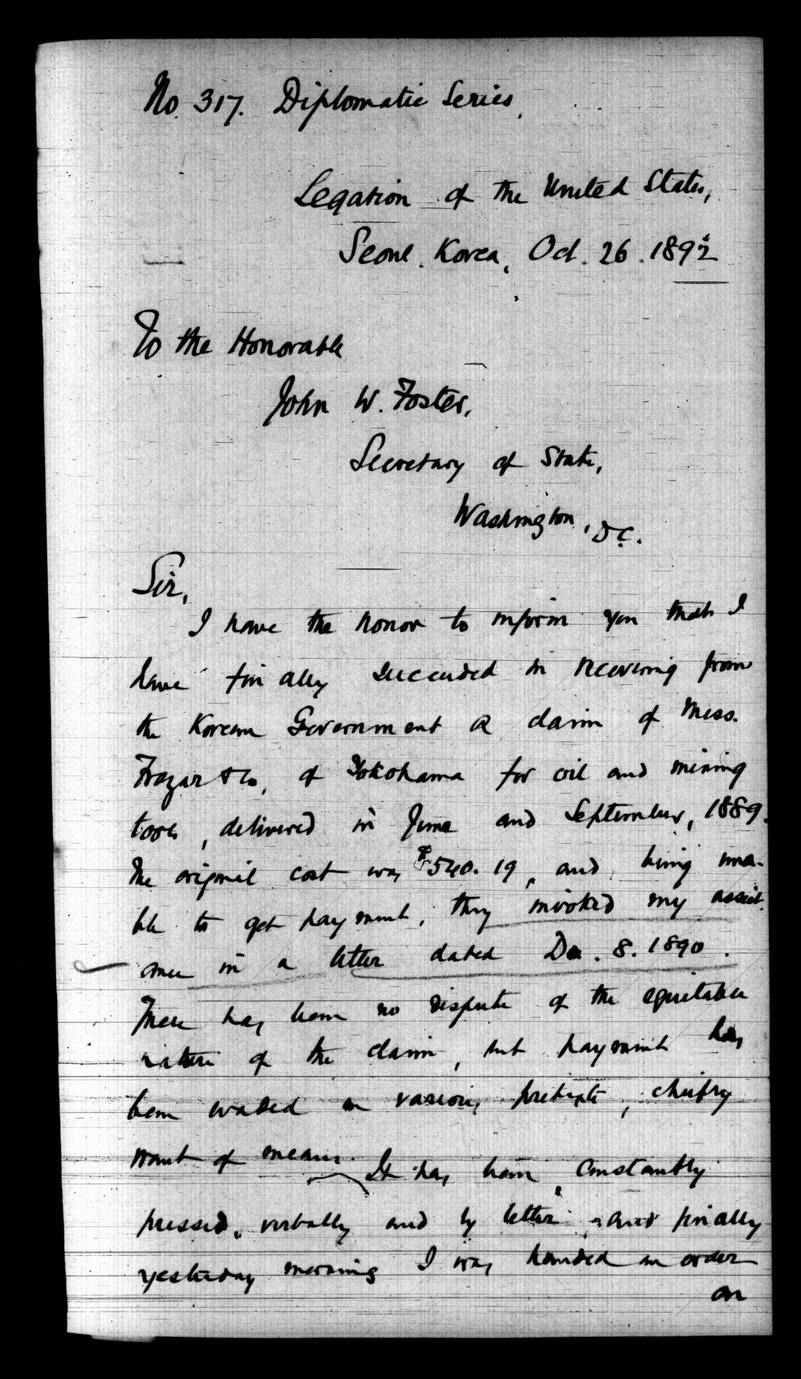 No. 317. Diplomatic Series.
Legation of the United States,
Seoul. Korea, Oct. 26. 1892
To the Honorable
John W. Foster,
Secretary of State,
Washington, D.C.
Sir,
I have the honor to inform you that I
have finally succeeded in recovering from
the Korean Government a claim of Mess.
Frazar & Co, of Yokohama for oil and mining
tools, delivered in June and September, 1889.
The original cost was $540.19, and being una-
ble to get payment, they invoked my assist-
ance in a letter dated Dec. 8. 1890.
There has been no dispute of the equitable
nature of the claim, but payment has
been evaded on various pretexts, chiefly
want of means. It has been constantly
pressed, verbally and by letter, and finally
yesterday morning I was handed an order
on